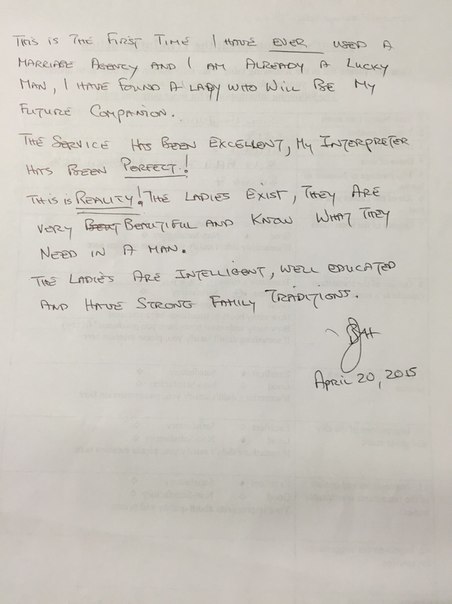 THIS IS THE FIRST TIME I HAVE EVER USED A
MARRIAGE AGENCY AND I AM ALREADY A LUCKY
MAN, I HAVE FOUND A LADY WHO WILL BE MY
FUTURE COMPANION.
THE SERVICE HAS BEEN EXCELLENT, MY INTERPRETER
HAS BEEN PERFECT!
THIS IS REALITY! THE LADIES EXIST, THEY ARE
VERY BEAUTIFUL AND KNOW WHAT THEY
NEED IN A MAN.
THE LADIES ARE INTELLIGENT, WELL EDUCATED
AND HAVE STRONG FAMILY TRADITIONS.
APRIL 20, 2015